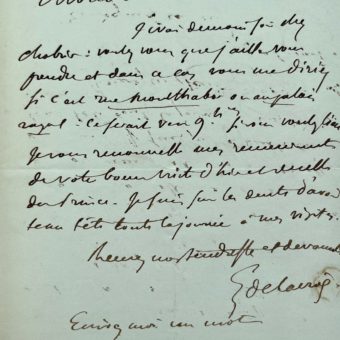 J'irai demain soir chez
Chabrier : voulez vous que j'aille vous
prendre et dans ce cas vous me direz
si c'est rue Montthabor ou au palais
royal. Ce serait vers 9h si vous voulez bien
Je vous renouvelle mes remerciements
de votre bonne visite d'hier et de celle
du Prince. Je suis sur les dents d'avoir
tenu tête toute la journée à mes visites.
Recevez mes tendresses et dévouement
E Delacroix
Envoyez moi un mot